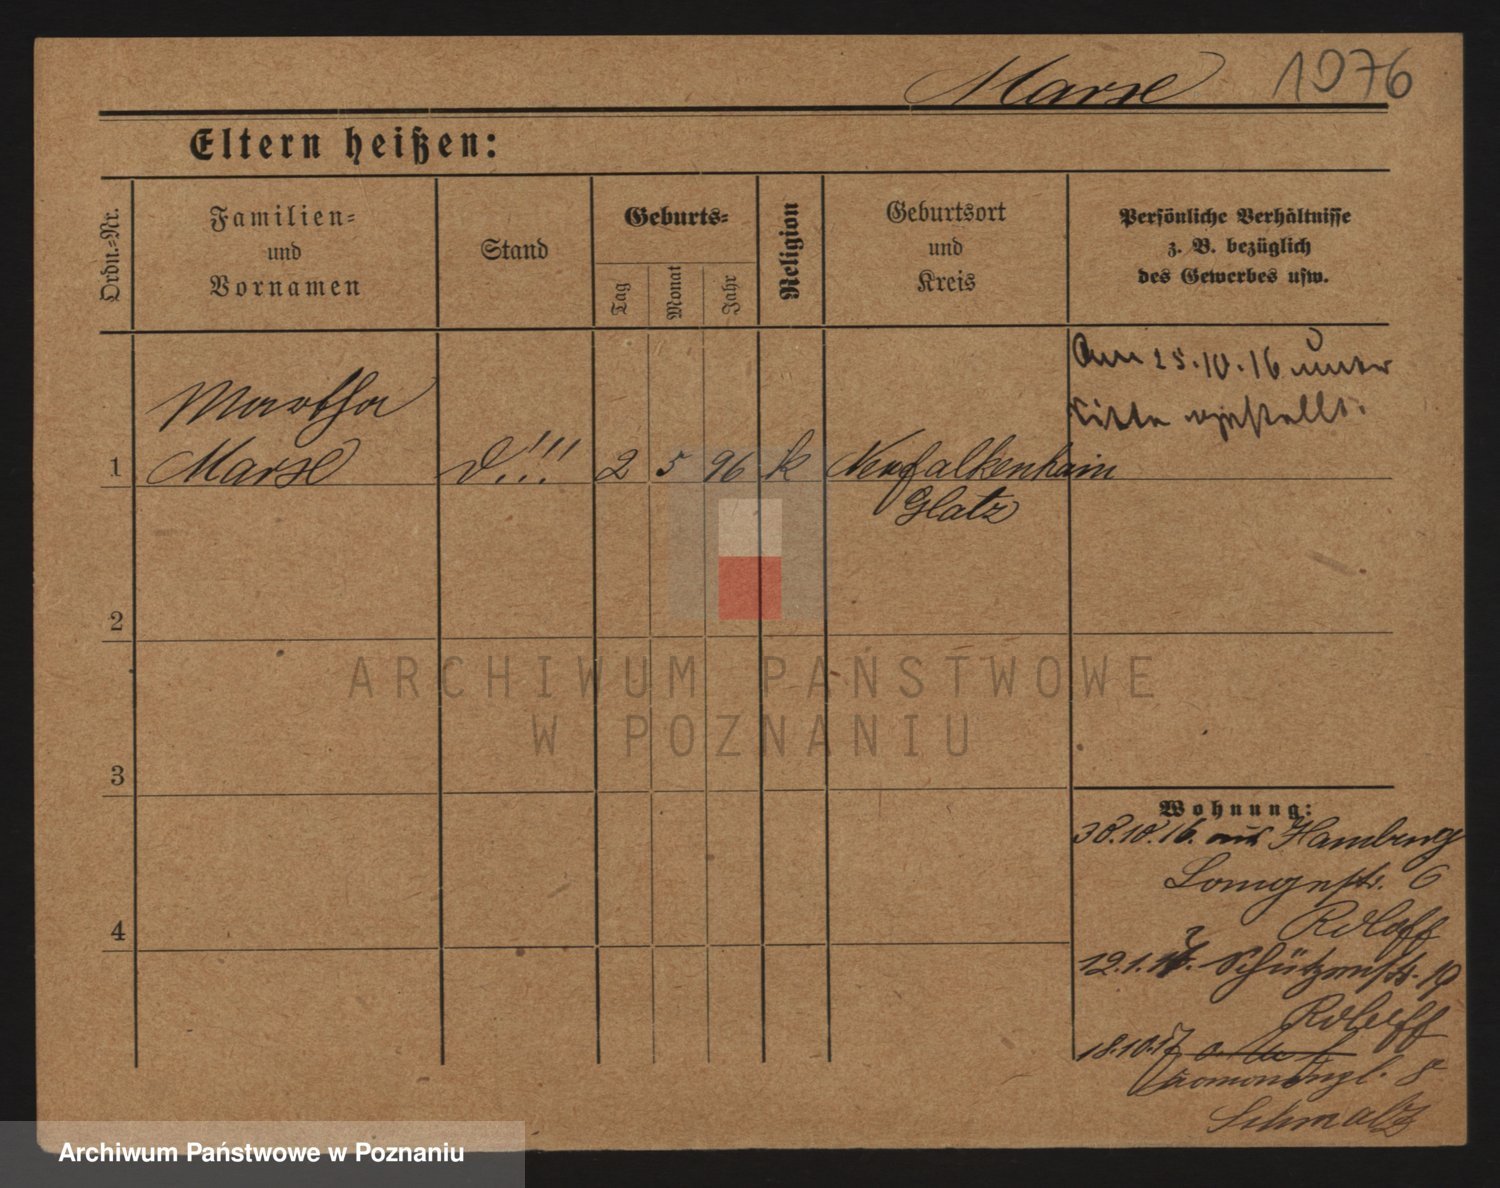 Marse 1076
Eltern heißen:
Ordn.=Nr.
Familien=
und
Vornamen
Stand
Geburts=
Tag
Monat
Jahr
Religion
Geburtsort
und
Kreis
Persönliche Verhältnisse
z. B. bezüglich
des Gewerbes usw.
Am 25.10.16 unter
Sitte gestellt.
Martha
1 Marse d!!! 2 5 96 k Neufalkenhain
Glatz
2
3
4
ARCHIWUM PAŃSTWOWE
W POZNANIU
Wohnung:
30.10.16. aus Hamburg
Langestr. 6
Roloff
12.1.17. Schützenstr. 19
Roloff
18.10.17
8
Schmalz
Archiwum Państwowe w Poznaniu